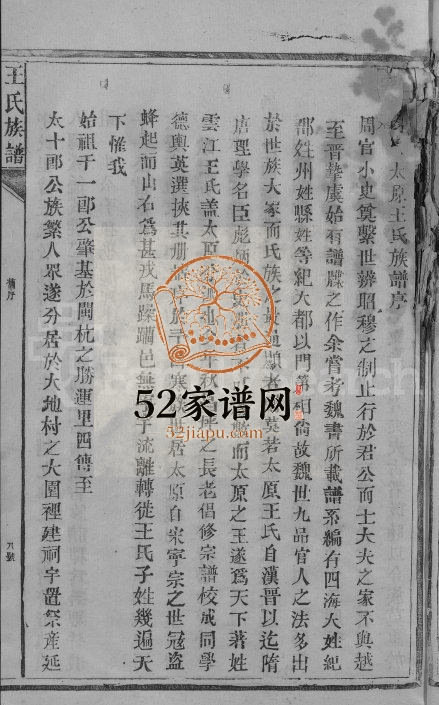 王氏族譜
舊序
八號
太原王氏族譜序
周官小史奠繫世辨昭穆之制止行於君公而士大夫之家不與越
至晉摯虞始有譜牒之作余嘗考魏書所載譜系編有四海大姓紀
郡姓州姓縣姓等紀大都以門第相尙故魏世九品官人之法多出
於世族大家而氏族之最通顯者莫若太原王氏自漢晉以迄隋
唐理學名臣彪炳於而太原之王遂爲天下著姓
雲江王氏蓋太原之長老倡修宗譜校成同學
德輿英選挾其册居太原自宋寧宗之世冠盜
蜂起而山右爲甚戎馬蹂躪邑無子流離轉徙王氏子姓幾遍天
下惟我
始祖千一郎公肇基於閩杭之勝運里四傳至
太十郎公族繁人眾遂分居於大地村之大園裡建祠宇置祭産延
52家谱网
52jiapu.com